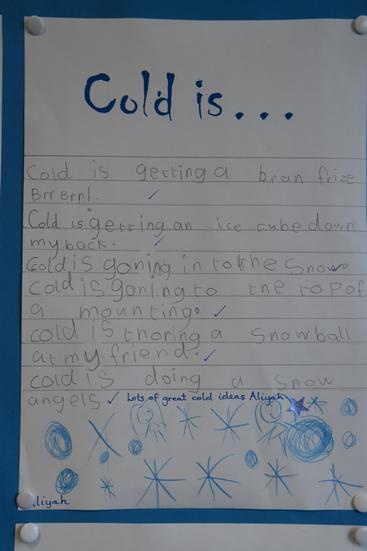 Cold is...
Cold is getting a bran frize
Brr Brr!.
Cold is getting an ice cube down
my back.
Cold is goning in to the Snow
cold is goning to the top of
a mounting.
cold is thoring a Snowball
at my friend.
cold is doing a snow
angels
Lots of great cold ideas Aliyah
Aliyah